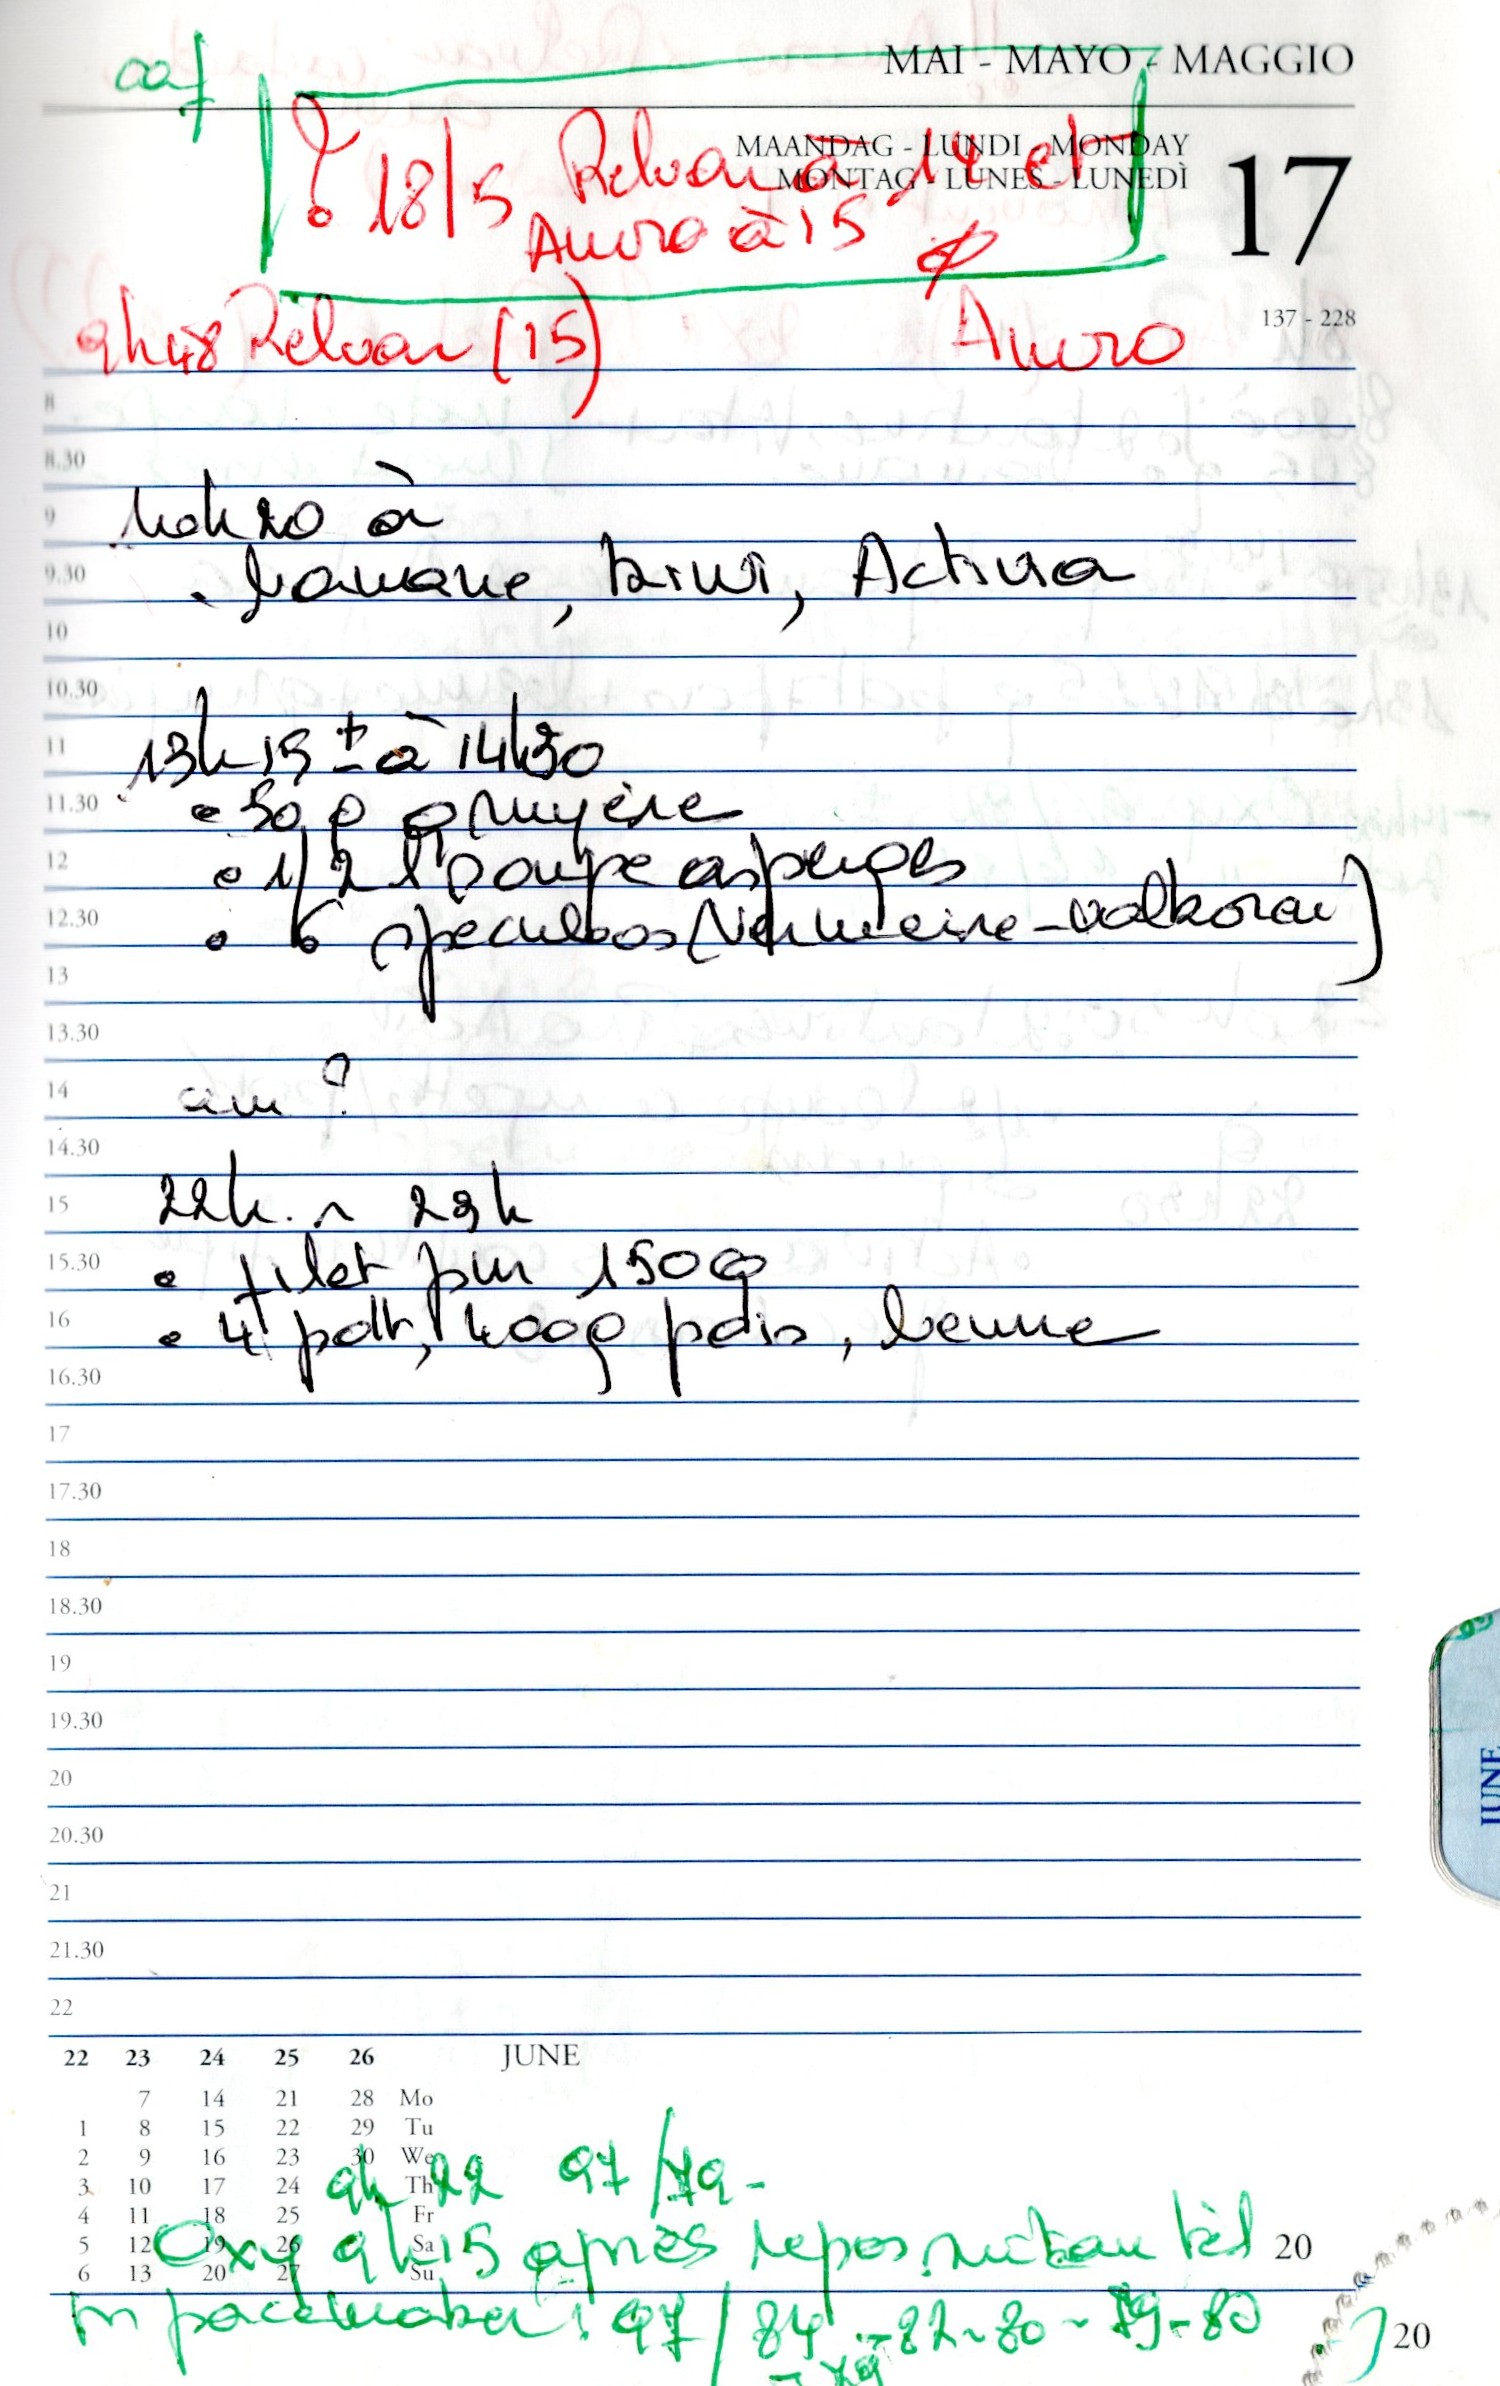 MAI - MAYO - MAGGIO
MAANDAG - LUNDI - MONDAY
MONTAG - LUNES - LUNEDÌ
17
18/5 Relvar à 14 et
Anoro à 15
137 - 228
9h48 Relvar (15) Anoro
8
8.30
9
10h20 à
9.30
. banane, kiwi, Activia
10
10.30
11
13h15 ± à 14h30
11.30
• 50 g gruyère
12
• 1/2 l soupe asperges
12.30
• 6 speculoos (Vermeire-
13
13.30
14
am ?
14.30
15
22h. ~ 23h
15.30
• filet pur 150g
16
• 4 pdt, 400g pois, beurre
16.30
17
17.30
18
18.30
19
19.30
20
20.30
21
21.30
22
22 23 24 25 26 JUNE
7 14 21 28 Mo
1 8 15 22 29 Tu
2 9 16 23 30 We
3 10 17 24 Th
4 11 18 25 Fr
5 12 19 26 Sa
6 13 20 27 Su
9h22 97/79-
Oxy 9h15 après repos tél
pacemaker : 97/84 -82-80-79-80
-79
20
20
JUNE